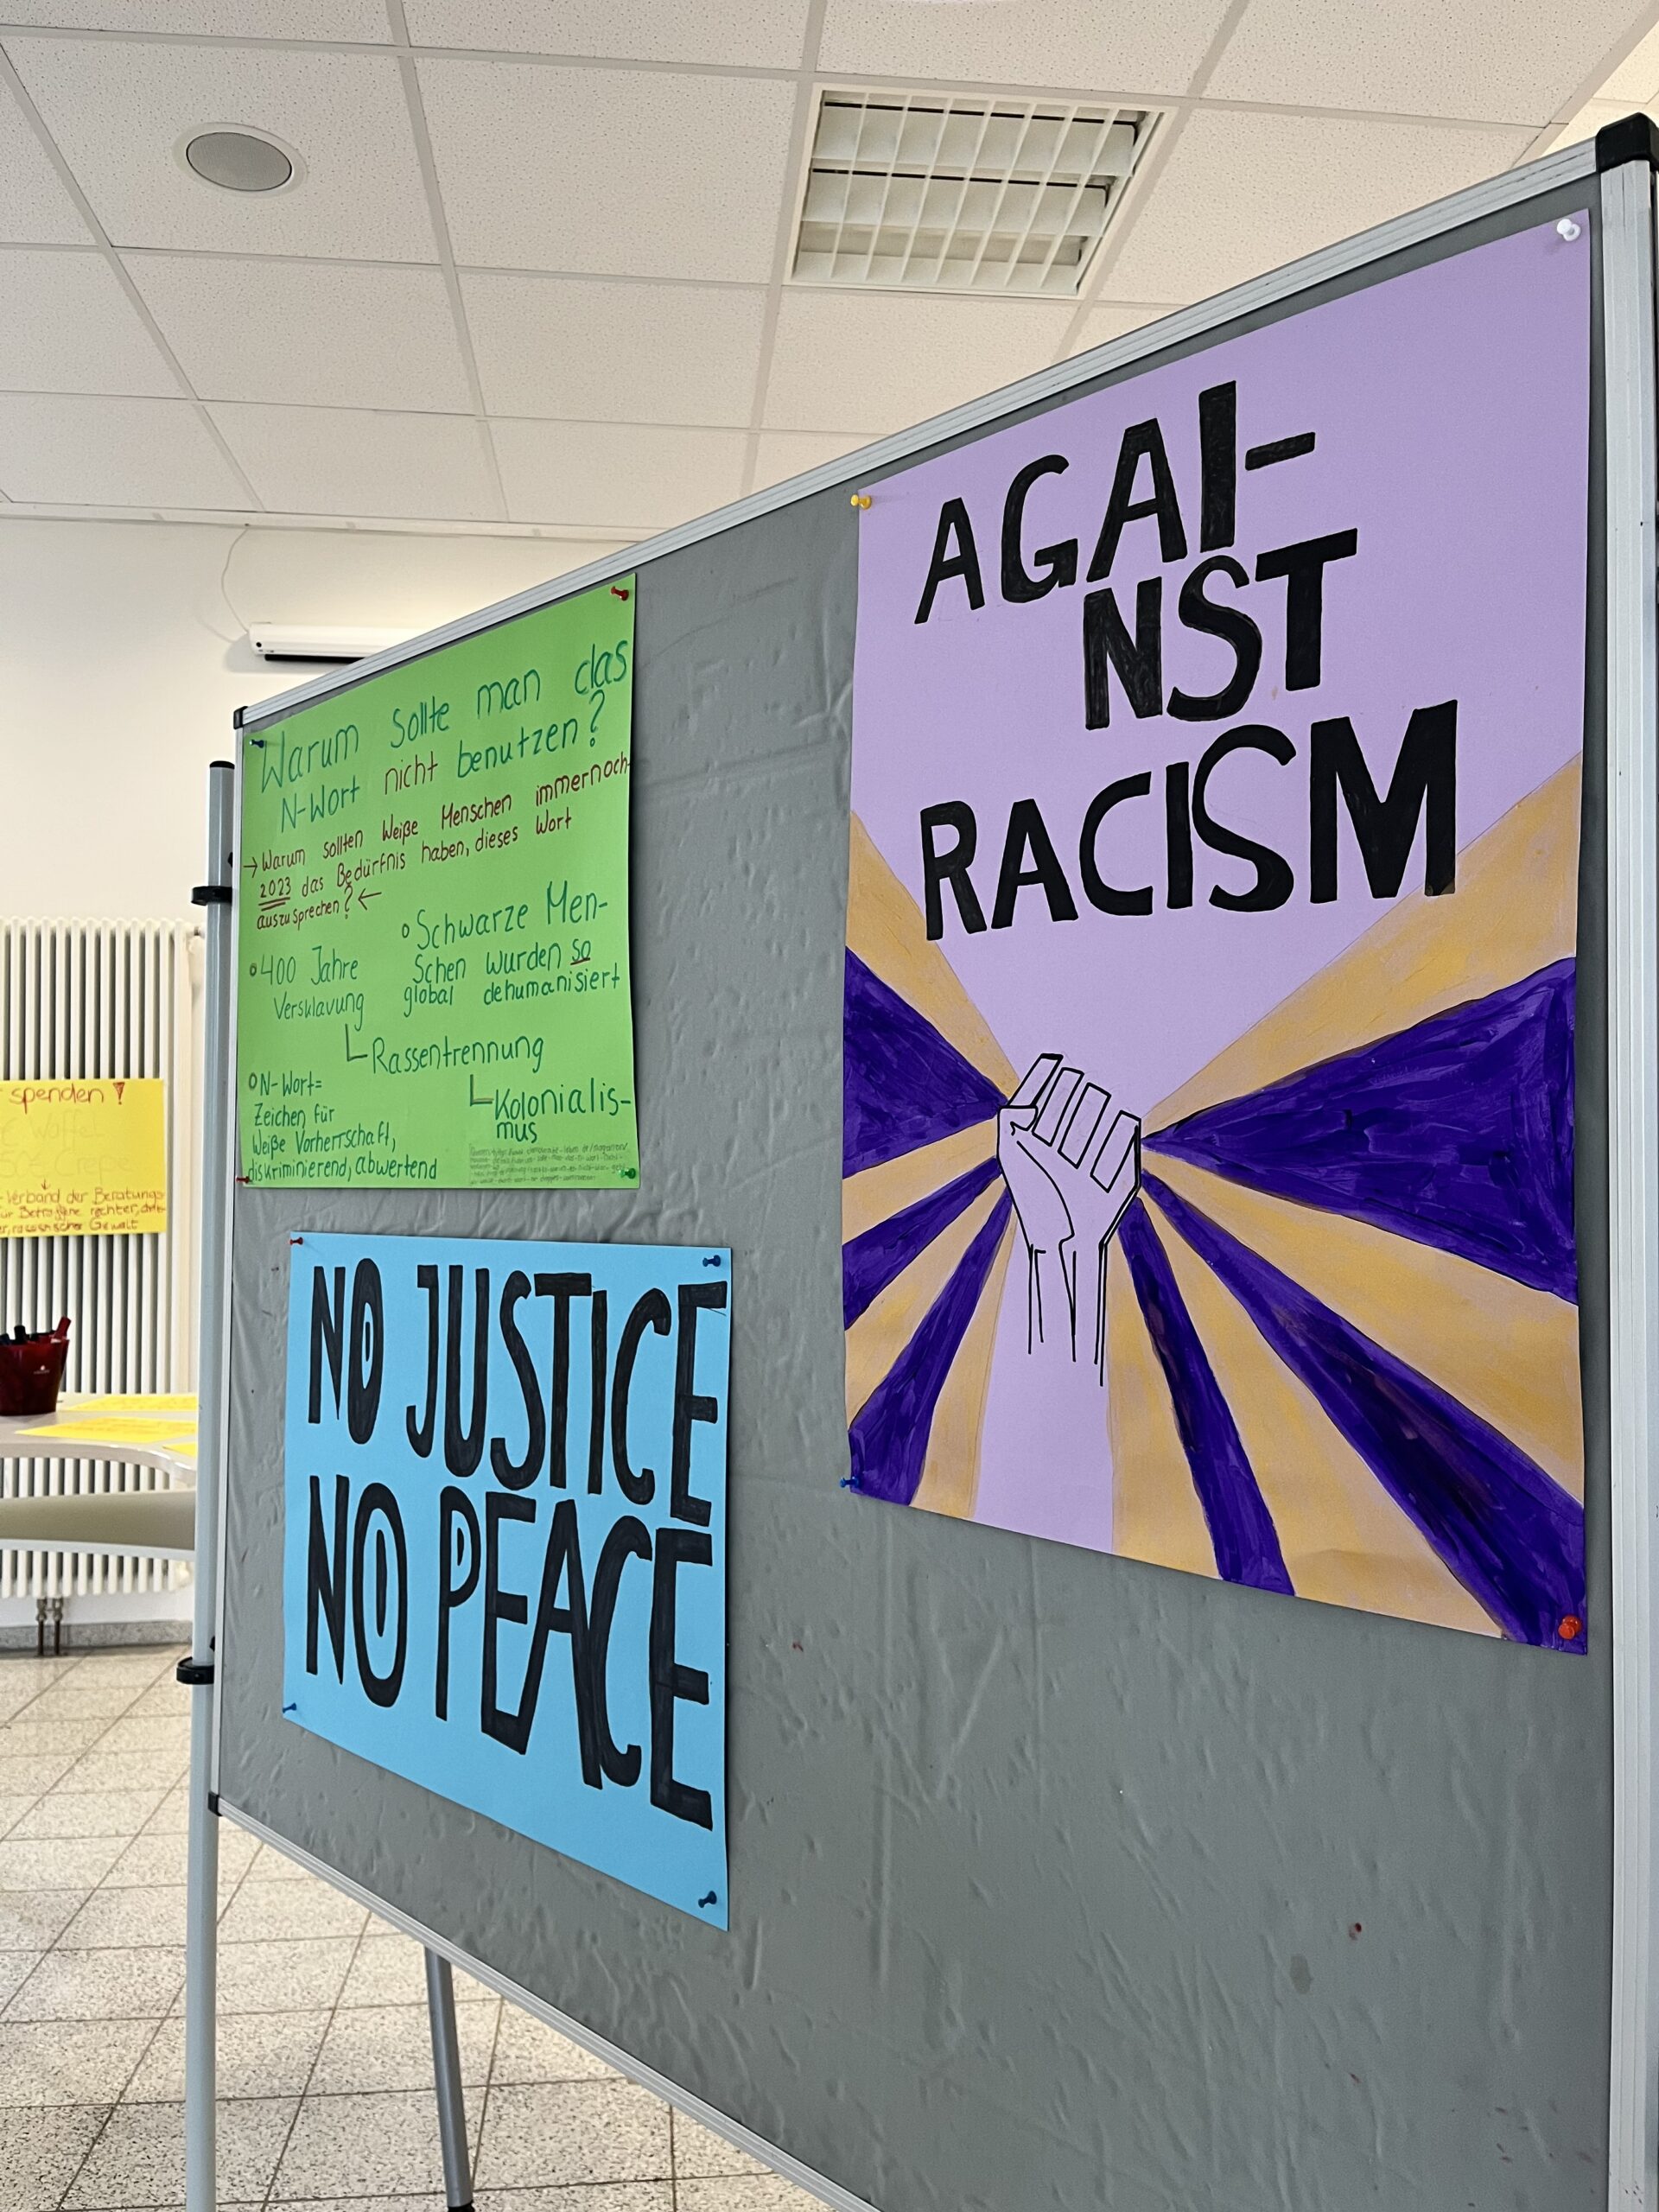 Warum sollte man das
N-Wort nicht benutzen?
→ Warum sollten Weiße Menschen immernoch
2023 das Bedürfnis haben, dieses Wort
auszusprechen? ←
° 400 Jahre
Versklavung
° Schwarze Men-
schen wurden so
global dehumanisiert
Rassentrennung
Kolonialis-
mus
° N-Wort=
Zeichen für
Weiße Vorherrschaft,
diskriminierend, abwertend
NO JUSTICE
NO PEACE
AGAI-
NST
RACISM
spenden!
Waffel
Verband der Beratungs-
für Betroffene rechter,
Gewalt